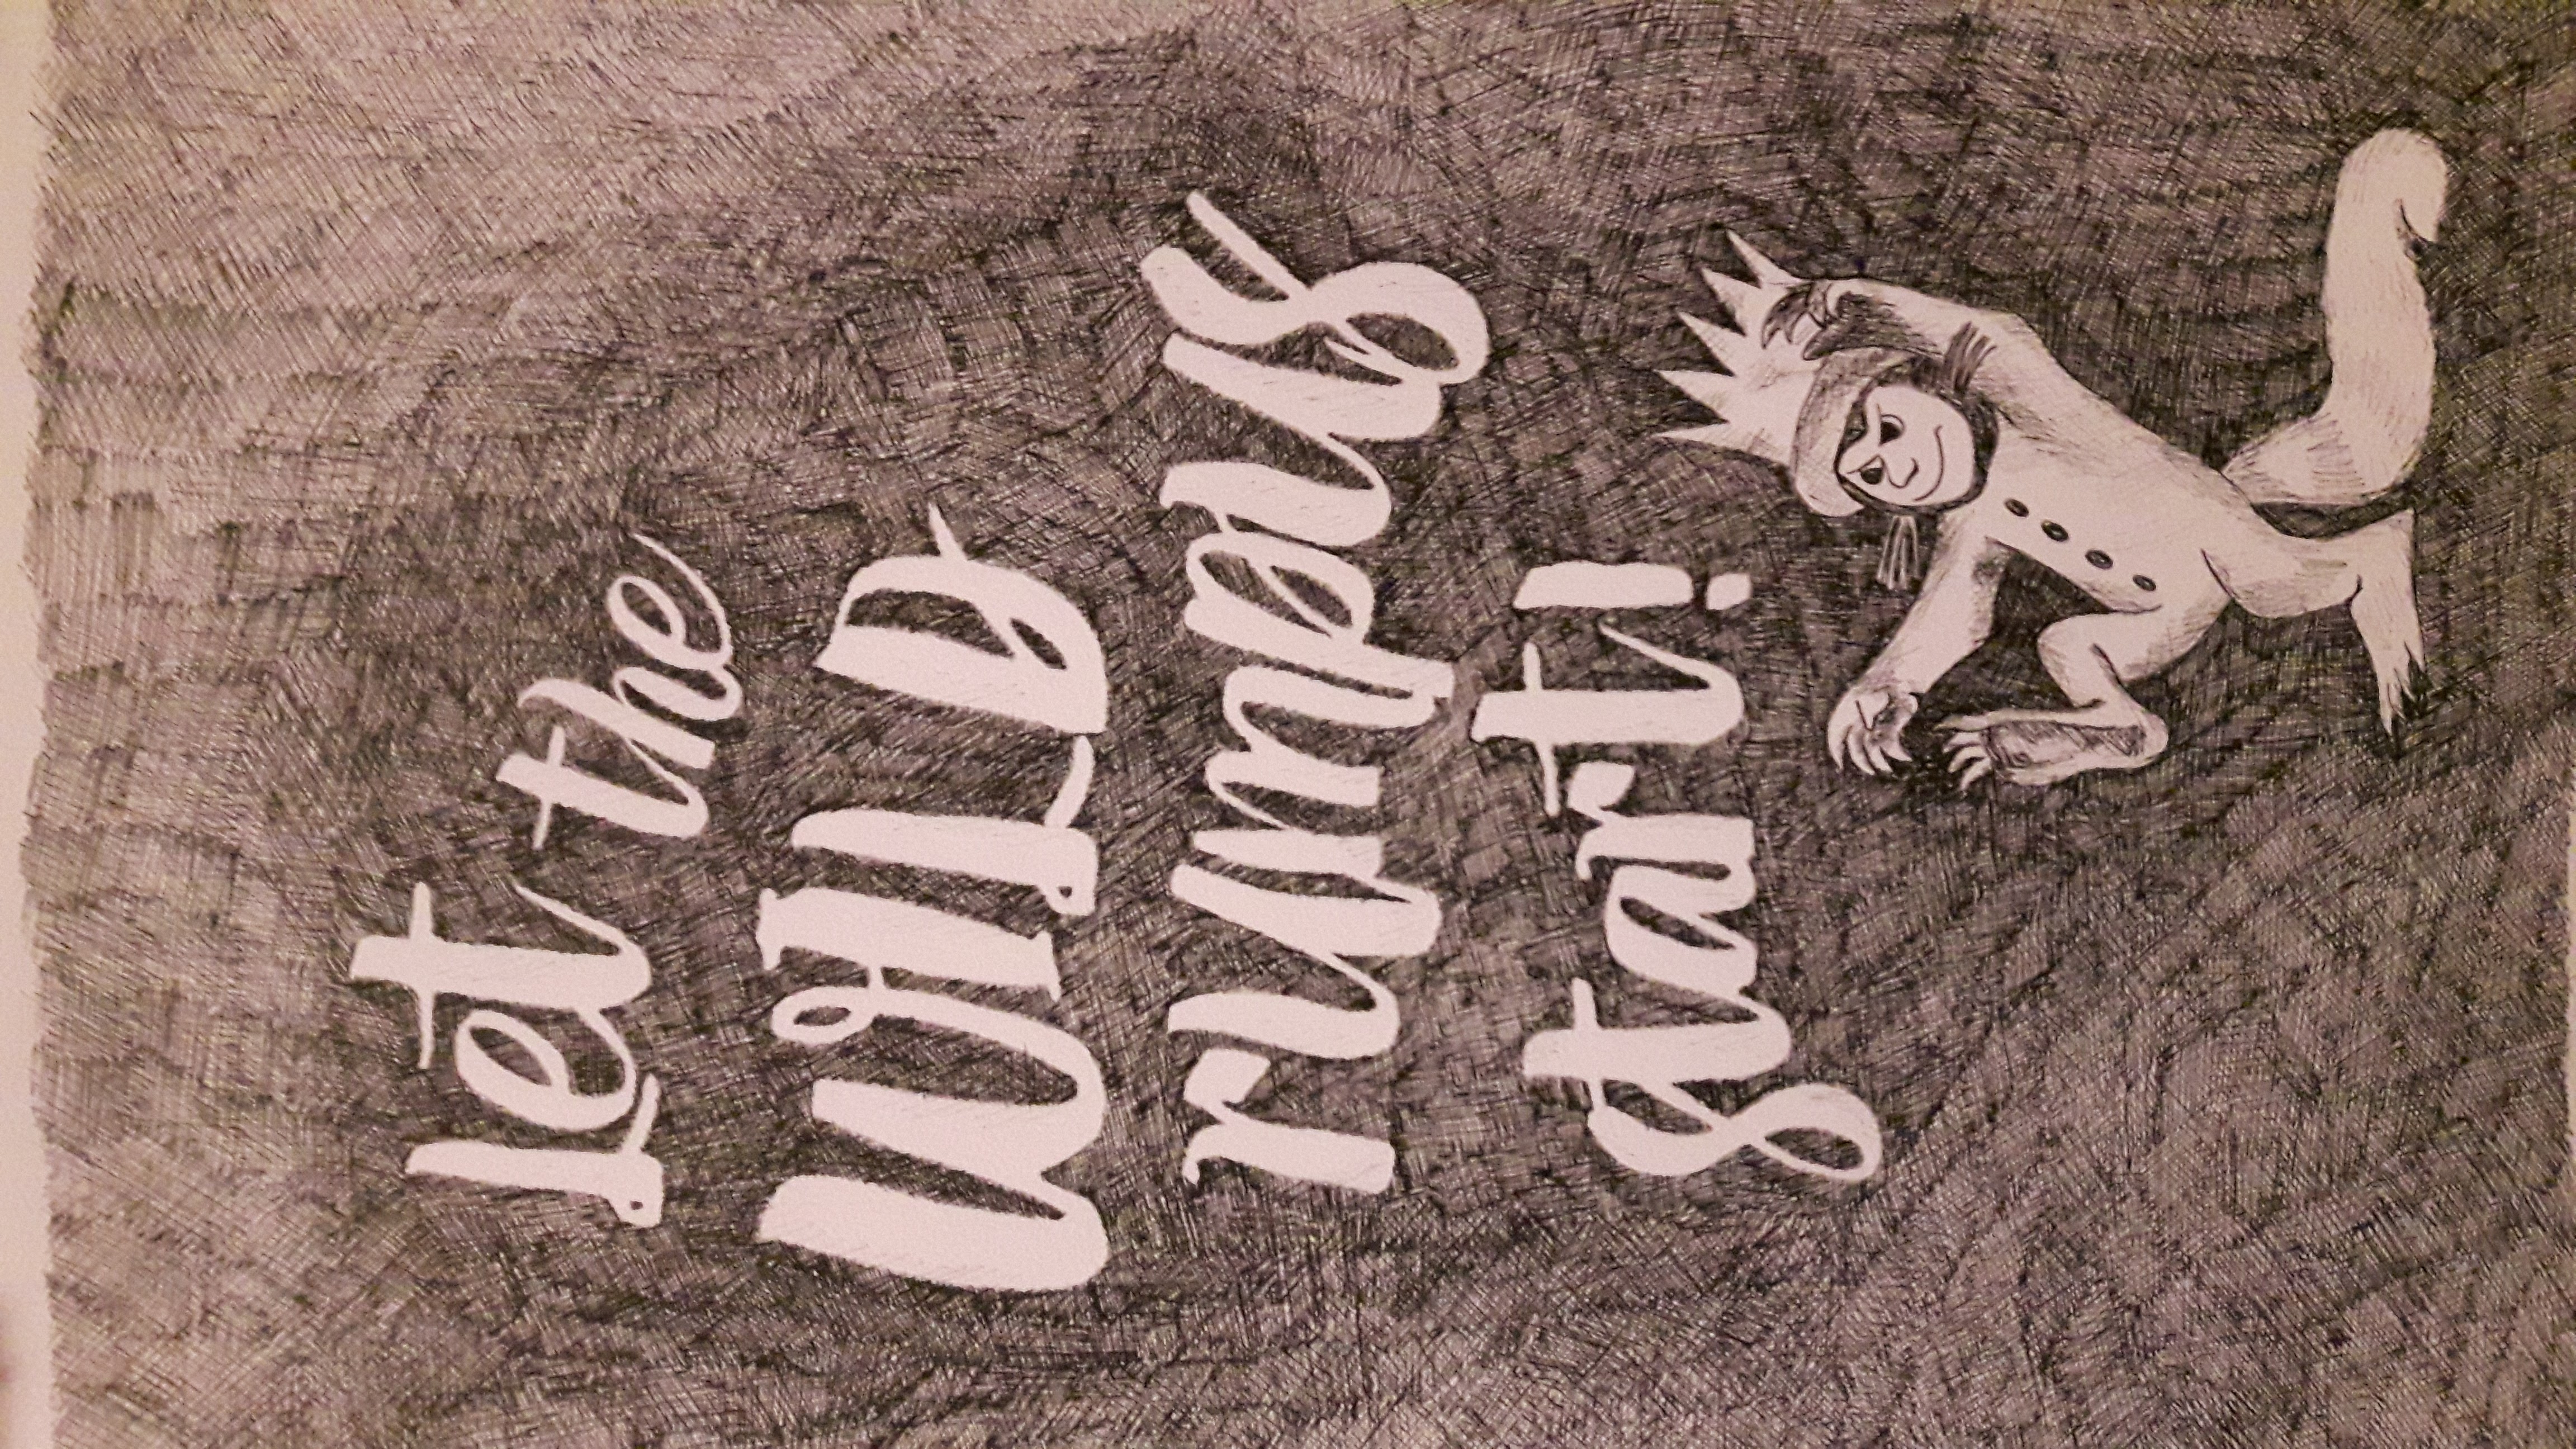 Let the
WILD
rumpus
start!